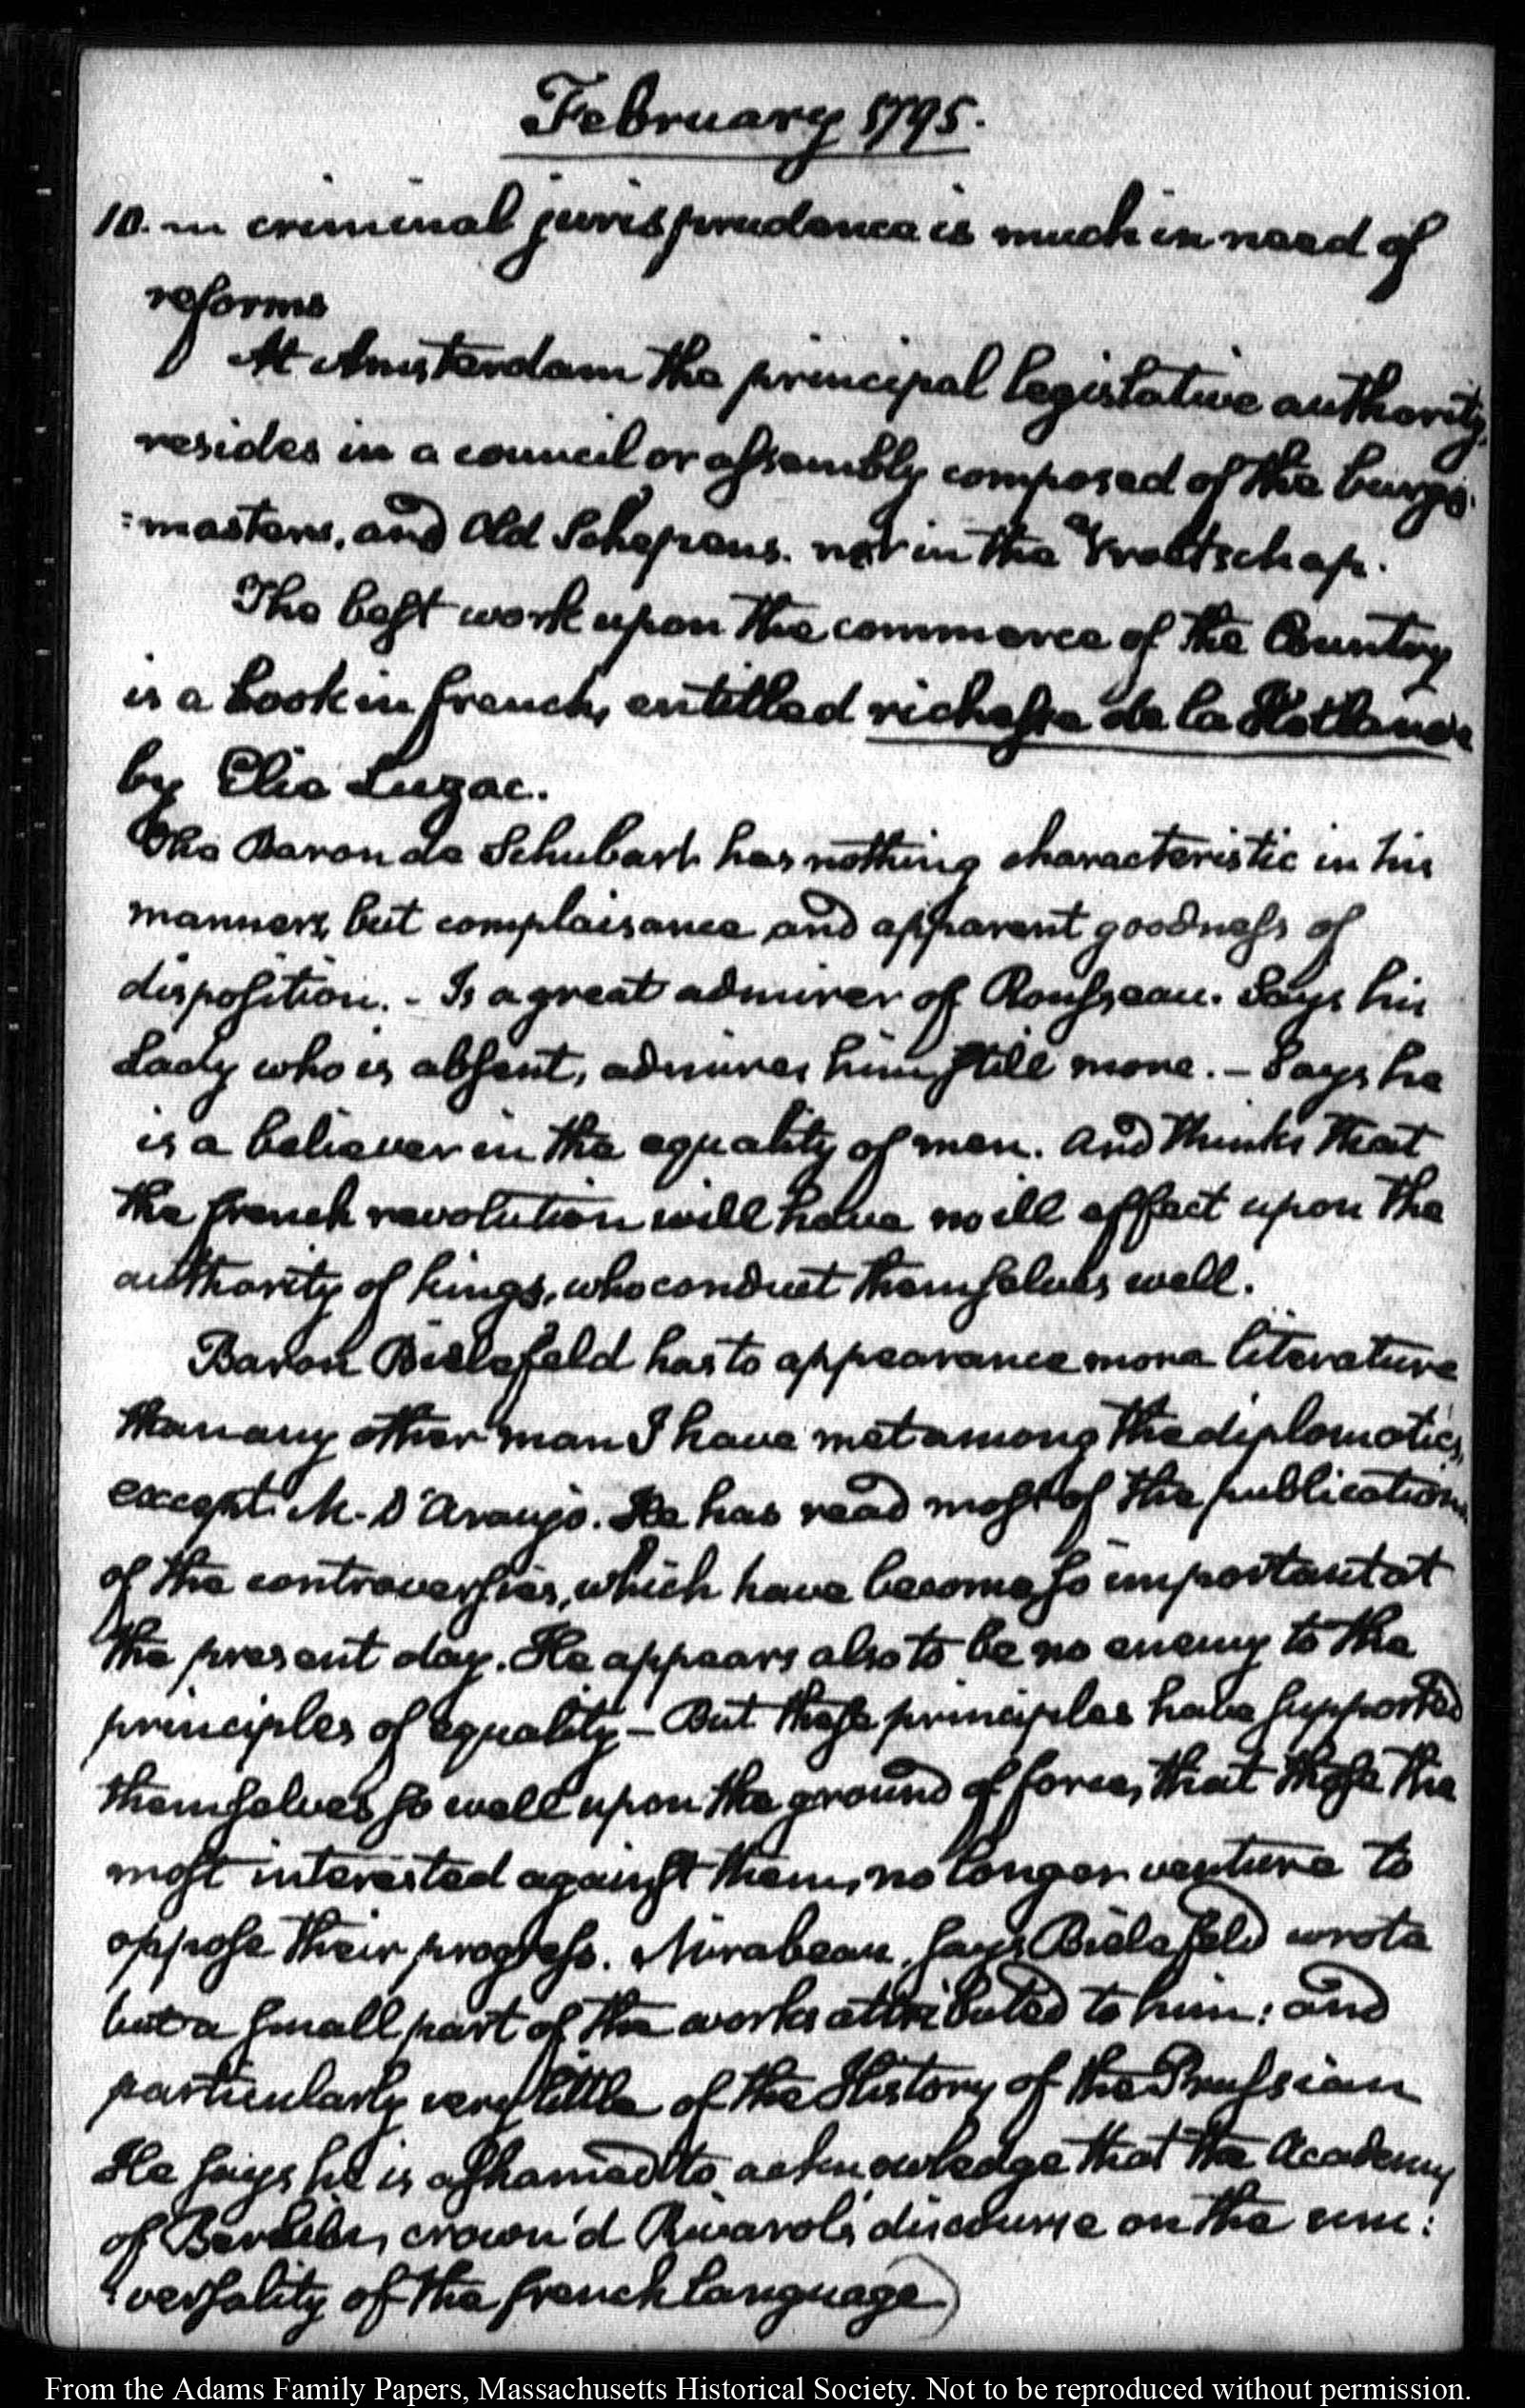 February 1795.
10. in criminal jurisprudence is much in need of
reforms
At Amsterdam the principal legislative authority
resides in a council or assembly composed of the burgo:
:masters, and Old Schepens. not in the Vroetschap.
The best work upon the commerce of the Country
is a book in french, entitled richesse de la Hollande
by Elie Luzac.
The Baron de Schubart has nothing characteristic in his
manners, but complaisance and apparent goodness of
disposition. - Is a great admirer of Rousseau. Says his
Lady who is absent, admires him still more. - Says he
is a believer in the equality of men. And thinks that
the french revolution will have no ill effect upon the
authority of kings, who conduct themselves well.
Baron Bielefeld has to appearance more literature
than any other man I have met among the diplomatics,
except M. D'Araujo. He has read most of the publications
of the controversies, which have become so important at
the present day. He appears also to be no enemy to the
principles of equality - But these principles have supported
themselves so well upon the ground of force, that those the
most interested against them, no longer venture to
oppose their progress. Mirabeau, says Bielefeld wrote
but a small part of the works attributed to him: and
particularly very little of the History of the Prussian
He says he is ashamed to acknowledge that the Academy
of Berlin, crown'd Rivarol's discourse on the uni:
:versality of the french language
From the Adams Family Papers, Massachusetts Historical Society. Not to be reproduced without permission.